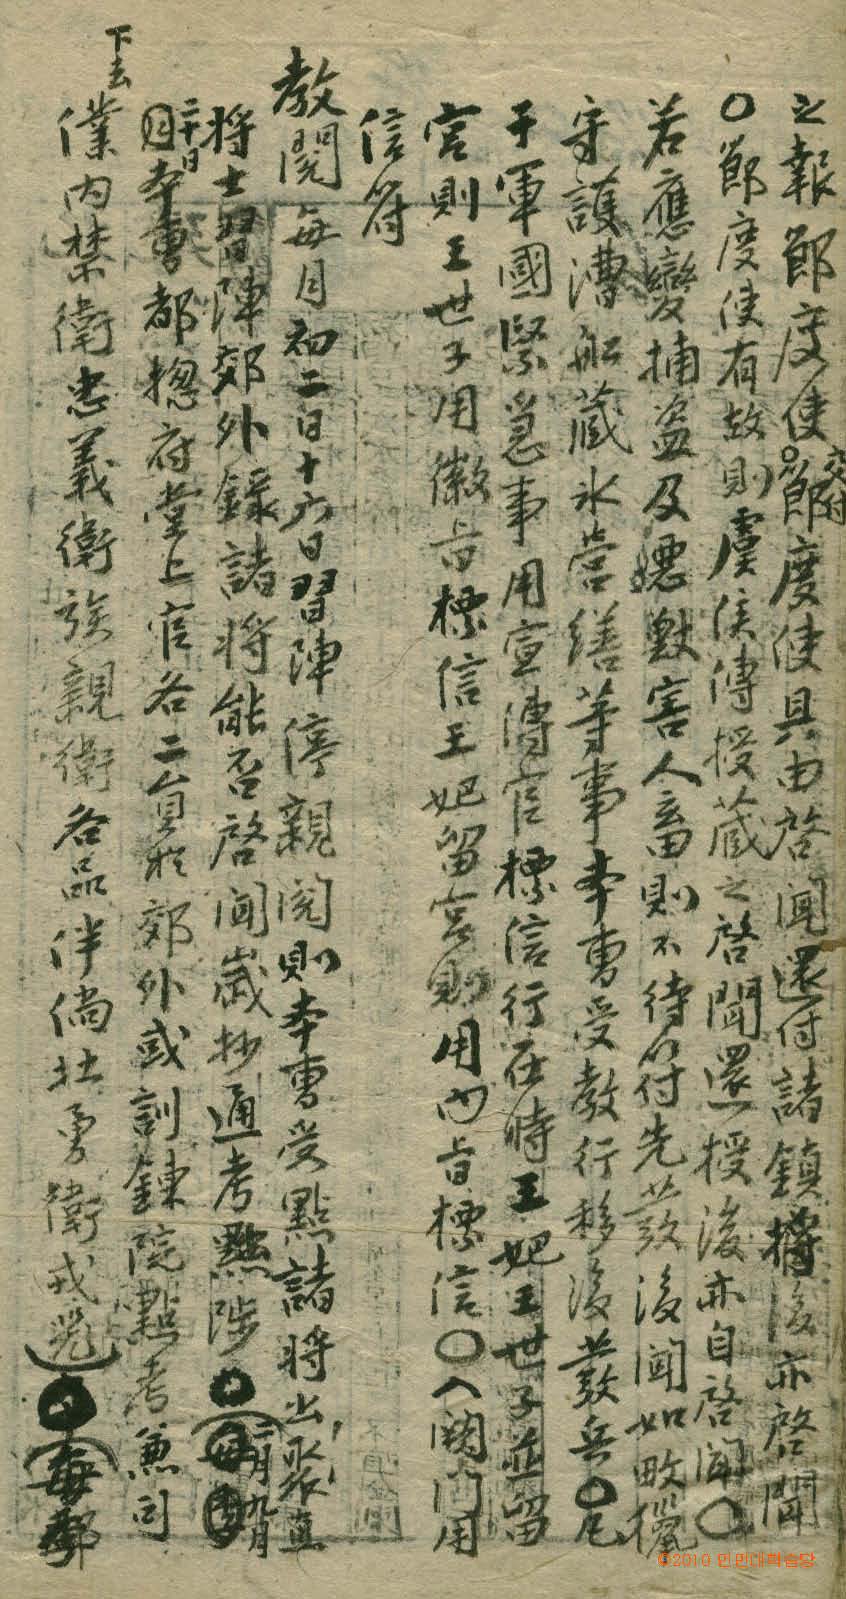 之報節度使○節度使具由啓聞還付諸鎭將後亦啓聞
交付
○節度使有故則虞侯傳授蔵之啓聞還授後亦自啓聞○
若應變捕盜及惡獸害人畜則不待符先發後聞如畋獵
守護漕船蔵氷營繕等事本曹受教行移後發兵○凡
干軍國緊急事用宣傳官標信行在時王妃王世子並留
宮則王世子用徽旨標信王妃留宮則用內旨標信○入闕門用
信符
教閱每月初二日十六日習陣停親閱則本曹受點諸將出聚
將士習陣郊外錄諸將能否啓聞歲抄通考黜陟
二月九月
二十日
本曹都摠府堂上官各二員於郊外或訓鍊院點考兼司
下去
僕內禁衛忠義衛族親衛各品伴倘壯勇衛戎
每
©2010 민민대학습당